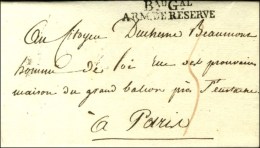 Bau Gal
ARM. DE RESERVE
Au Citoyen Duchesne Beaumont
homme de loi rue des prouvaires
maison du grand balcon près St eustache
à Paris